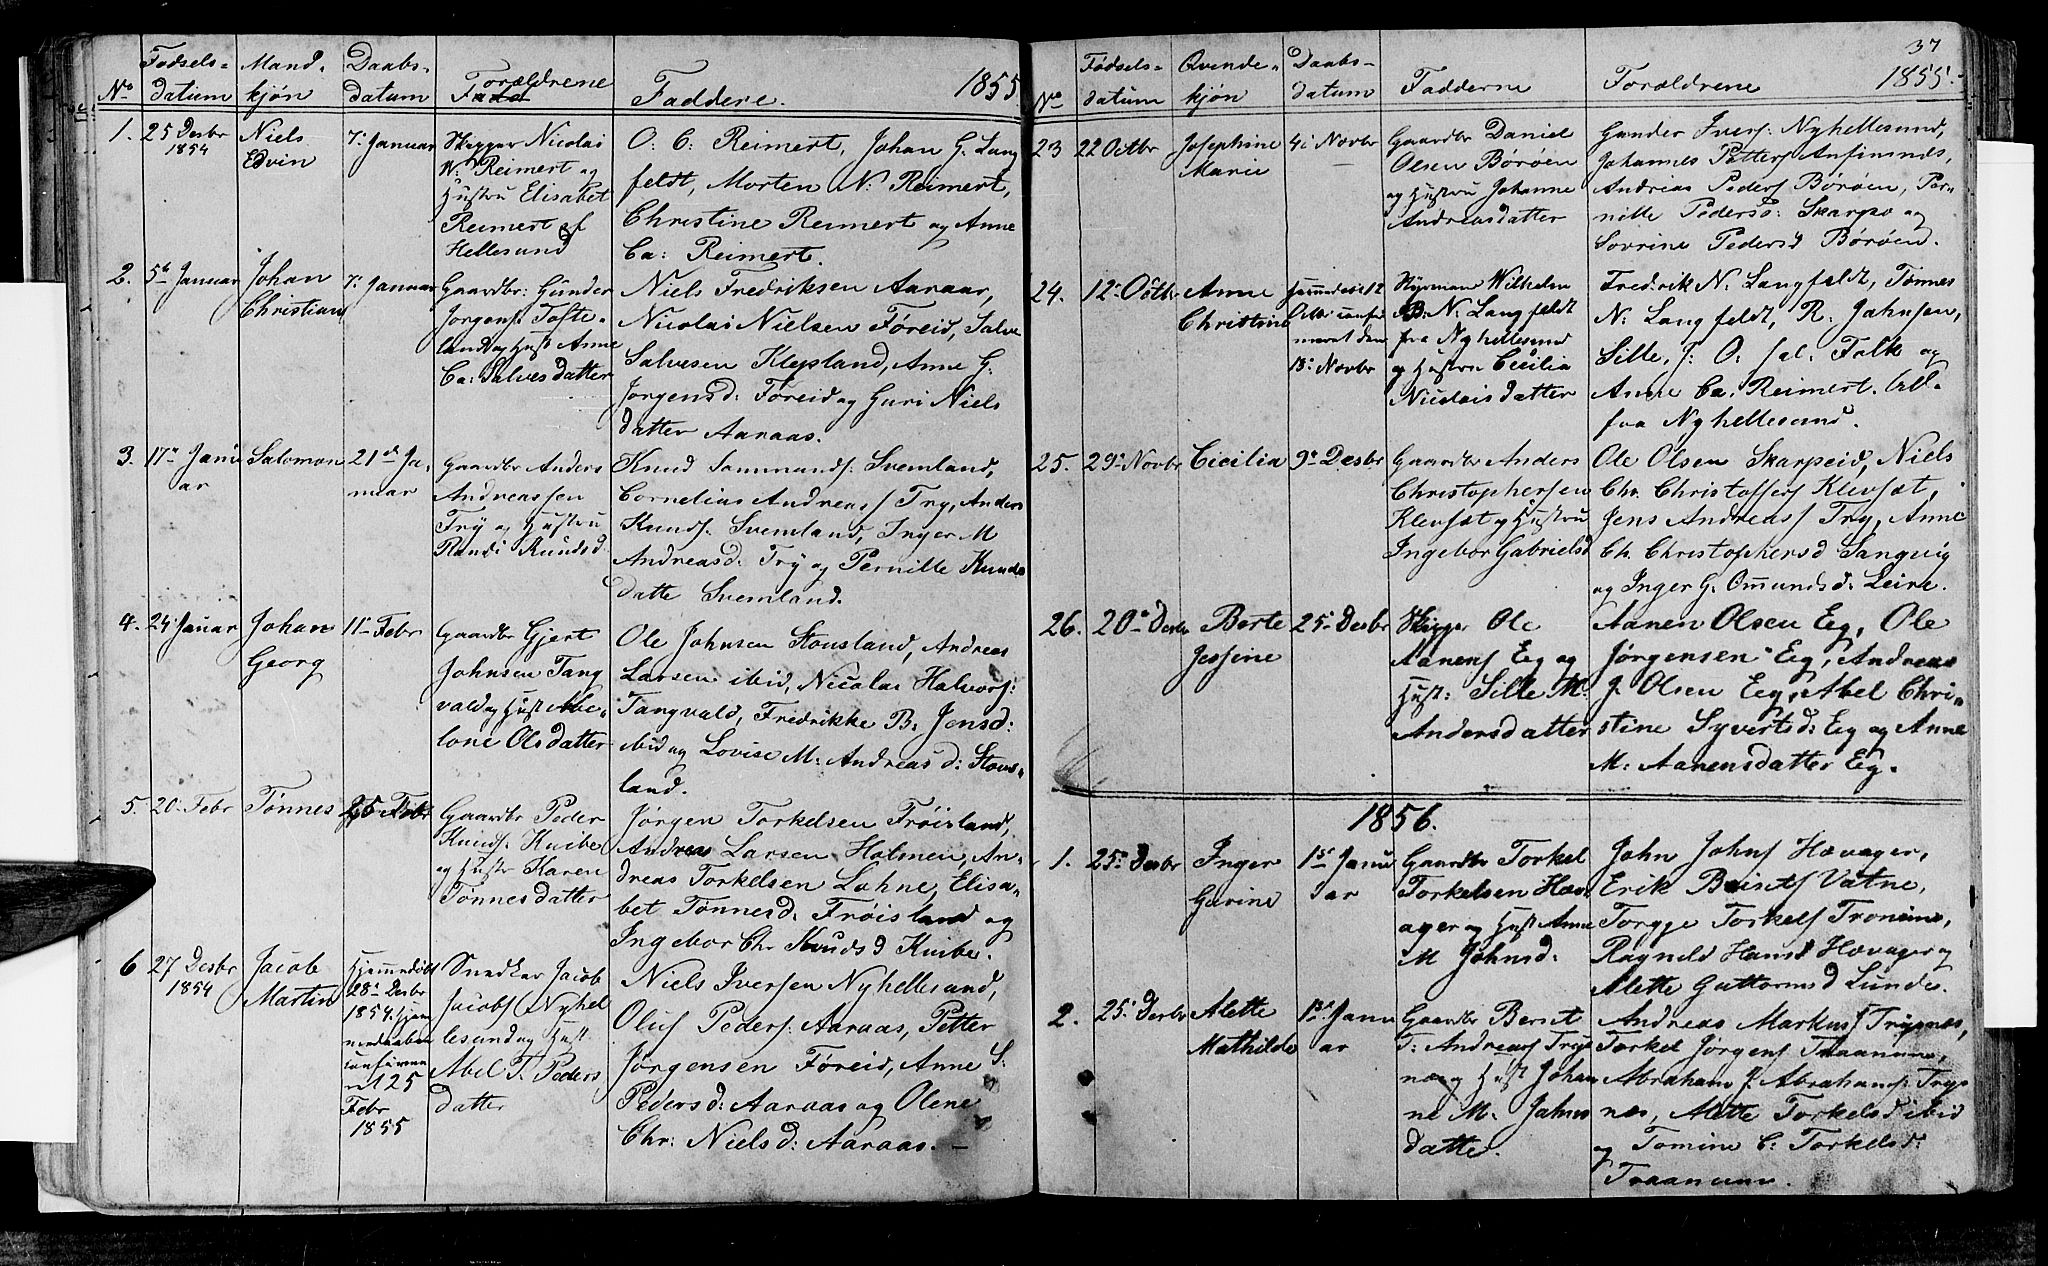 No
Fødsels-
datum
Mand-
kjøn
Daabs-
datum
Forældrene
Faddere.
1855
1.
25 Desbr
1854
Niels
Edvin
7. Januar
Skipper Nicolai
N: Reimert og
Hustru Elisabet
Reimert af
Hellesund
O. C. Reimert, Johan G. Lang
feldt, Morten N: Reimert,
Christine Reimert og Anne
Ca: Reimert.
2.
5te Januar
Johan
Christian
7. Januar
Gaardbr: Gunder
Jørgens: Tofte-
land og Hust Anne
Ca: Salvesdatter
Niels Fredriksen Aaraas,
Nicolai Nielsen Føreid, Salve
Salvesen Klepsland, Anne G.
Jørgensd: Føreid og Guri Niels
datter Aaraas.
3.
17de Janu
ar
Salomon
21de Ja-
nuar
Gaardbr Anders
Andreassen
Try og Hustru
Randi Knudsd
Knud Sammunds: Svemland,
Cornelius Andreass Try, Anders
Knuds. Svemland, Inger M
Andreasd: Try og Pernille Knuds
datte Svemland.
4.
24. Januar
Johan
Georg
11te Febr
Gaardbr Gjert
Johnsen Tang
vald og Hust Abe-
lone Olsdatter
Ole Johnsen Stousland, Andreas
Larsen ibid, Nicolai Halvors:
Tangvald, Fredrikke B. Jensd:
ibid og Lovise M. Andreasd: Stous-
land.
5.
20. Febr
Tønnes
25 Febr
Gaardbr Peder
Knuds: Kuibe
og Hustr Karen
Tønnesdatter
Jørgen Torkelsen Frøisland,
Andreas Larsen Holmen, An-
dreas Torkelsen Lohne, Elisa-
bet Tønnesd. Frøisland og
Ingebor Chr Knudsd Kuibe.
6
27 Desbr
1854
Jacob
Martin
Hjemmedøbt
28de Desbr
1854.
confirme
ret 25
Febr
1855
Jacob
Jacobs Nyhel
lesund og Hust
Abel T. Peders
datter
Niels Iversen Nyhellesund,
Oluf Peders: Aaraas, Petter
Jørgensen Føreid, Anne S.
Pedersd: Aaraas og Olene
Chr: Nielsd: Aaraas.-
37
No
Fødsels-
datum
Qvinde-
kjøn
Daabs-
datum
Fadderne
Forældrene
1855.
23
22 Octbr
Josephine
Marie
4. Novbr
Gaardbr Daniel
Olsen Børøen
og Hustru Johanne
Andreasdatter
Gunder Ivers: Nyhellesund,
Johannes Petters Anfinsnes,
Andreas Peders Børøen, Per-
nille Pedersd: Skarpø og
Sovrine Pedersd Børøen.
24.
12te Octbr
Anne
Christine
13. Novbr
Styrmand Wilhelm
B. N. Langfeldt
fra Nyhellesund
og Hustru Cecilia
Nicolaisdatter
Fredrik N. Langfeldt, Tønnes
N. Langfeldt, R. Jahnsen,
Sille, J: O. sal. Falk og
Anne Ca. Reimert. Alle
fra Nyhellesund.
25.
29. Novbr
Cicilia
9de Desbr
Gaardbr Anders
Christophersen
Klevset og Hustru
Ingebor Gabrielsd
Ole Olsen Skarpeid, Niels
Chr. Christoffers Klevset,
Jens Andreass Try, Anne
Ch. Christophersd Sangvig
og Inger G. Omundsd: Leire.
26.
20de Desbr
Berte
Jessine
25. Desbr
Skipper Ole
Aanens Eeg og
Hust: Sille M.
Andersdatter
Aanen Olsen Eeg, Ole
Jørgensen Eeg, Andreas
J. Olsen Eeg, Abel Chri-
stine Syvertsd: Eeg og Anne
M: Aanensdatter Eeg.
1856.
1.
25. Desbr
Inger
Gurine
1ste Janu
ar
Gaardbr Torkel
Torkelsen Hæv-
ager og Hust Anne
M Johnsd:
John Johns Hævager,
Erik Vatne,
Torgje Torkels
Ragnild Hansd Hævager og
Alette Guttormsd Lunde.
2.
25. Desbr
Alette
Mathilde
Janu
ar
Gaardbr Berent
T: Andreass Trys
nes og Hust Johan
ne M. Jahns
datte.
Andreas Markuss Trysnes,
Torkel Jørgens
Abraham J. Abrahams: Trys
nes, Alette Torkelsd ibid
og Tomine C: Torkelsd: